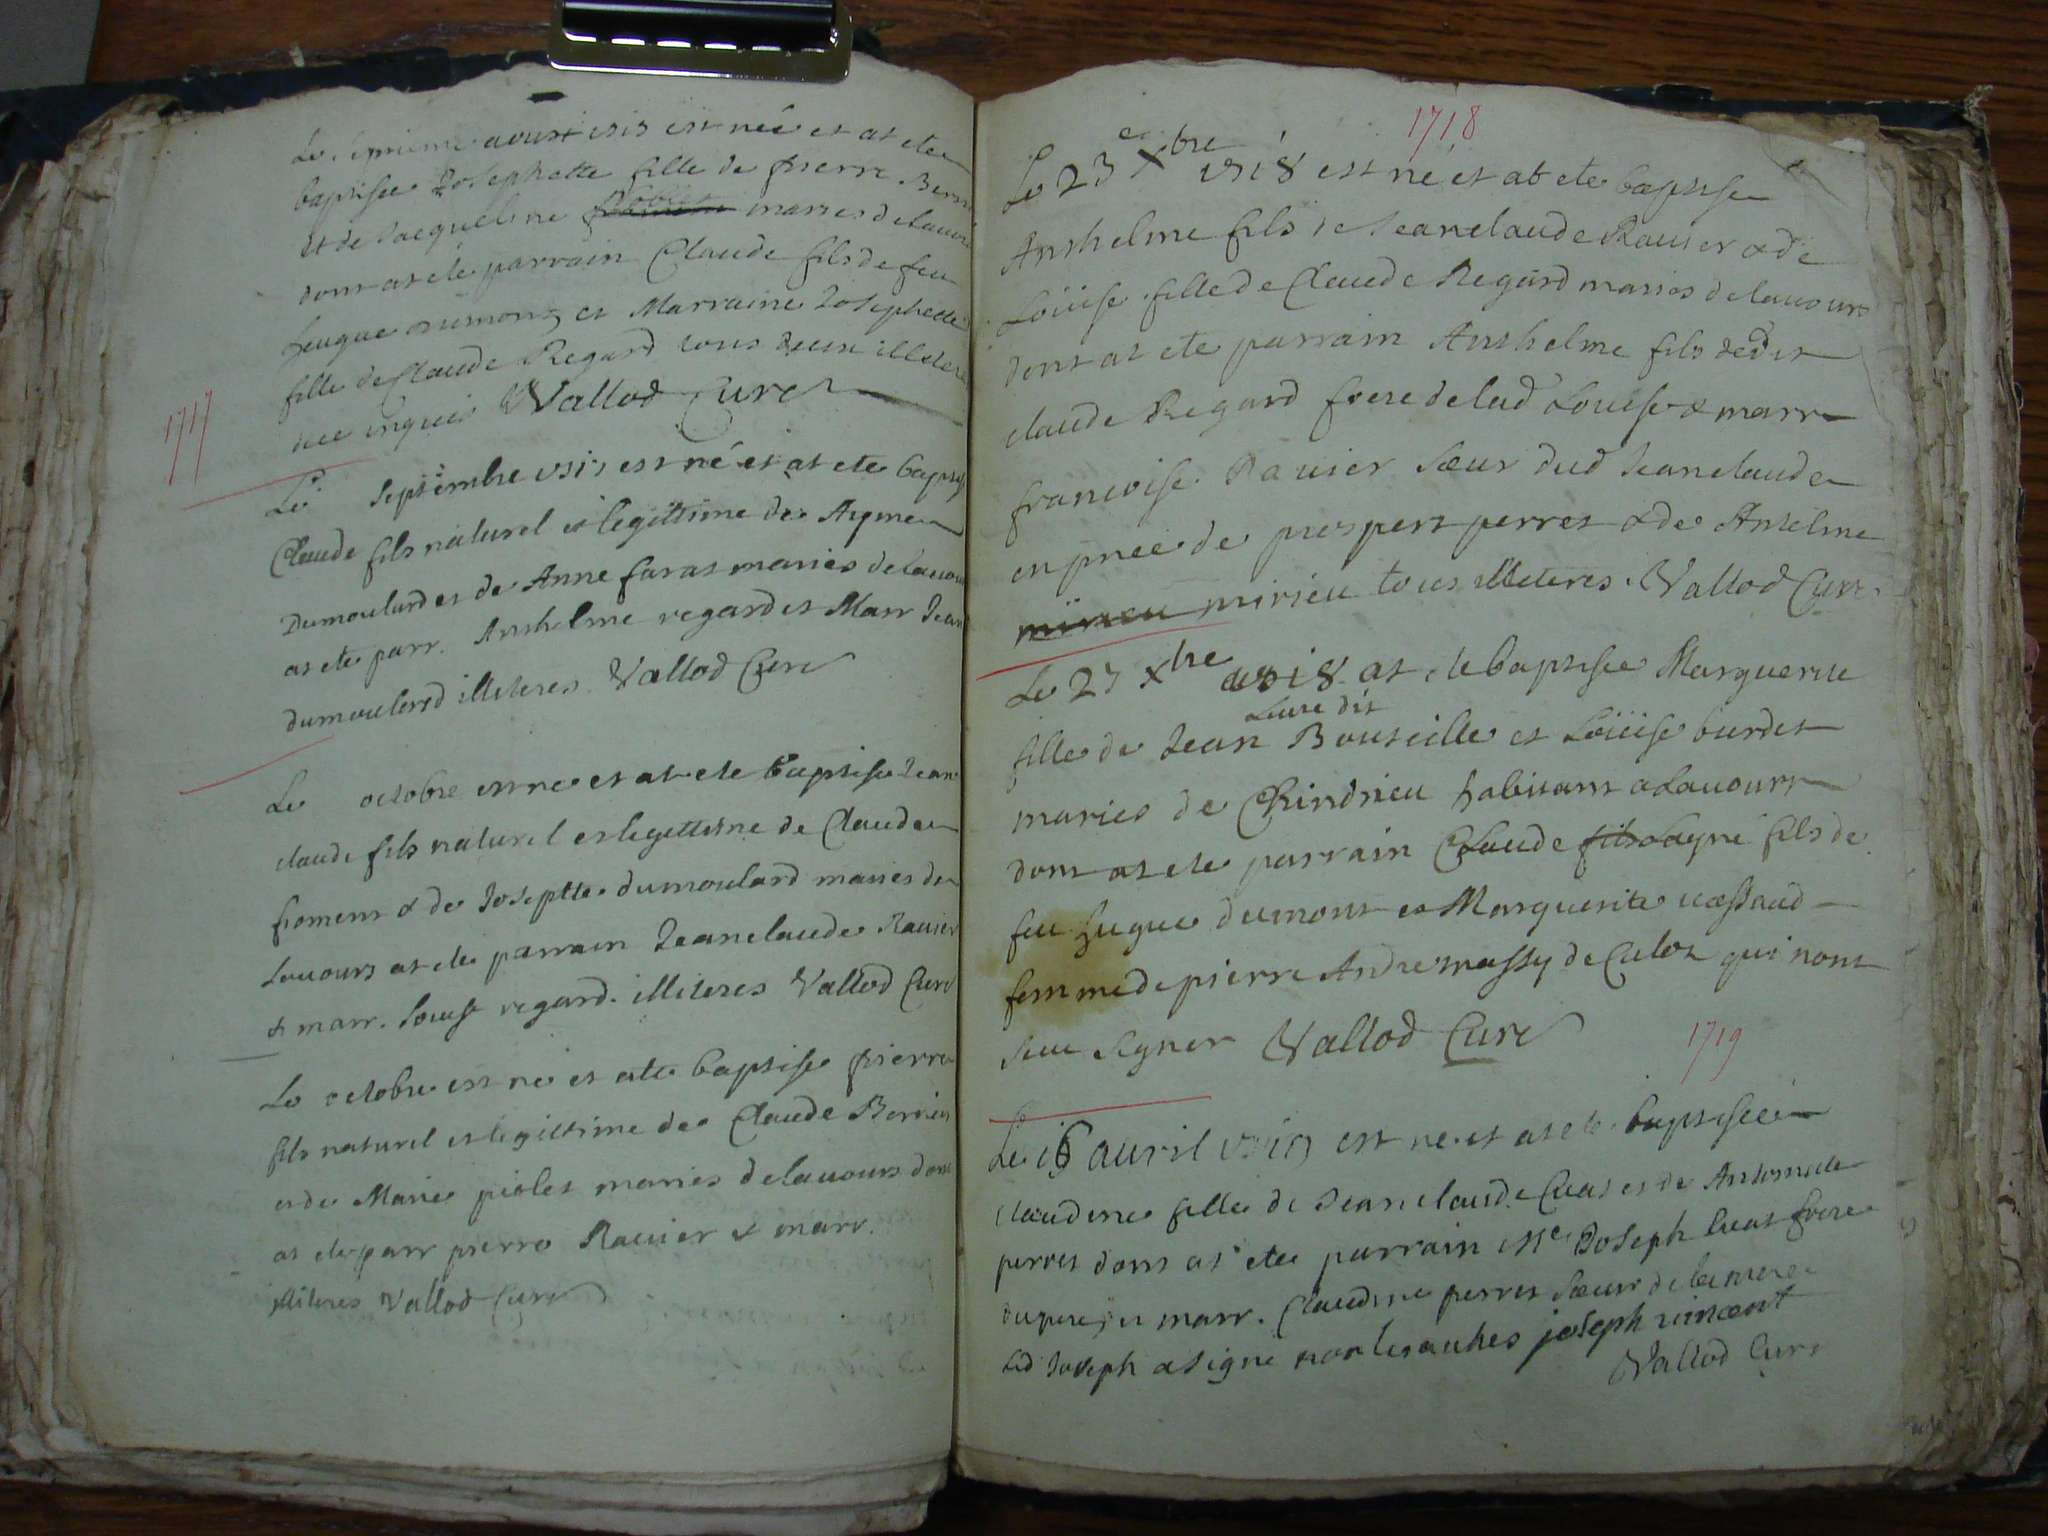 Le septieme aoust est née et at ete
baptisée Josephette fille de pierre
et de Jacqueline mariés de lavours
dont at ete parrain Claude fils de feu
hugue dumont, et Marraine Josephette
fille de Claude Regard tous deux illiteres
Vallod Curé
1717
Le septembre est né et at ete baptisé
Claude fils naturel et legittime de Ayme
Dumoulard et de Anne faras mariés de lavours
at ete parr. Anshelme regard et Marr Jean
dumoulard illiteres. Vallod Curé
Le octobre est ne et at ete baptise Jean
claude fils naturel et legittime de Claude
froment & de Josephte dumoulard maries de
Lavours at ete parrain Jeanclaude Ravier
& marr. regard. illiteres Vallod Curé
Le octobre est ne et ate baptise pierre
fils naturel et legittime de Claude
et de Marie piolet maries de lavours dont
at ete parr pierre Ravier & marr.
illiteres Vallod Curé
1718
Le 23e Xbre 1718 est né et at ete baptise
Anshelme fils de Jeanclaude Ravier & de
Loüise fille de Claude Regard mariés de lavours
dont at ete parrain Anshelme fils dedit
claude Regard frere de lad Louise & marr
francoise Ravier sœur dud Jeanclaude
en pnce de prospert perret & de Anselme
mirieu mirieu tous illiteres. Vallod Curé
Le 27 Xbre 1718 at ete baptisée Marguerite
Livre dit
fille de Jean Bouteille et Loüise burdet
maries de Chindrieu habitant a Lavours
dont at ete parrain Claude fils de
feu hugue dumont et Marguerite vassaud
femme de pierre Andre massy de Culoz qui nont
sceu signer Vallod Curé
1719
Le 16 avril 1719 est ne et at ete baptisée
claudine fille de Jeanclaude Cuat et de Anthonette
perret dont at ete parrain Mre Joseph Cuat frere
du pere, et marr. Claudine perret sœur de la mere
Led Joseph a signe non les autres joseph vincent
Vallod Curé